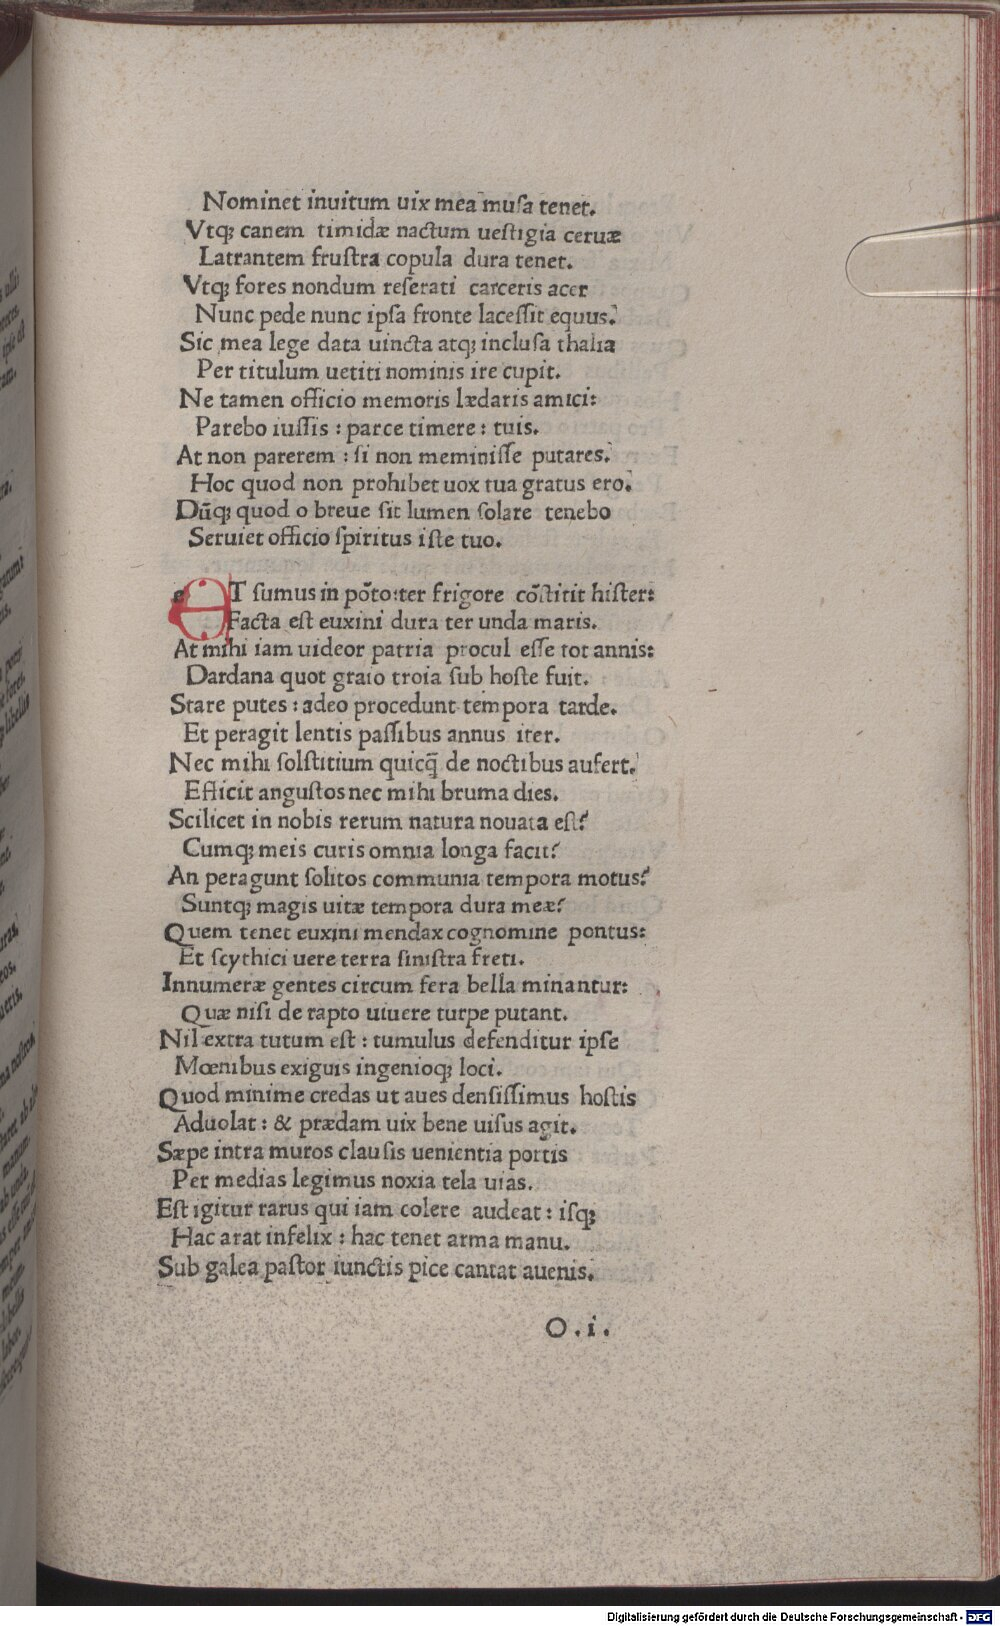 Nominet inuitum uix mea musa tenet.
Vtqꝫ canem timidæ nactum uestigia ceruæ
Latrantem frustra copula dura tenet.
Vtqꝫ fores nondum reserati carceris acer
Nunc pede nunc ipsa fronte lacessit equus.
Sic mea lege data uincta atqꝫ inclusa thalia
Per titulum uetiti nominis ire cupit.
Ne tamen officio memoris lædaris amici:
Parebo iussis : parce timere : tuis.
At non parerem : si non meminisse putares.
Hoc quod non prohibet uox tua gratus ero.
Dūqꝫ quod o breue sit lumen solare tenebo
Seruiet officio spiritus iste tuo.
eT sumus in pōto:ter frigore cōstitit hister:
Facta est euxini dura ter unda maris.
At mihi iam uideor patria procul esse tot annis:
Dardana quot graio troia sub hoste fuit.
Stare putes : adeo procedunt tempora tarde.
Et peragit lentis passibus annus iter.
Nec mihi solstitium quicq̄ de noctibus aufert.
Efficit angustos nec mihi bruma dies.
Scilicet in nobis rerum natura nouata est?
Cumqꝫ meis curis omnia longa facit?
An peragunt solitos communia tempora motus?
Suntqꝫ magis uitæ tempora dura meæ?
Quem tenet euxini mendax cognomine pontus:
Et scythici uere terra sinistra freti.
Innumeræ gentes circum fera bella minantur:
Quæ nisi de rapto uiuere turpe putant.
Nil extra tutum est : tumulus defenditur ipse
Mœnibus exiguis ingenioqꝫ loci.
Quod minime credas ut aues densissimus hostis
Aduolat : & prædam uix bene uisus agit.
Sæpe intra muros clausis uenientia portis
Per medias legimus noxia tela uias.
Est igitur rarus qui iam colere audeat : isqꝫ
Hac arat infelix : hac tenet arma manu.
Sub galea pastor iunctis pice cantat auenis.
O.i.
Digitalisierung gefördert durch die Deutsche Forschungsgemeinschaft - DFG